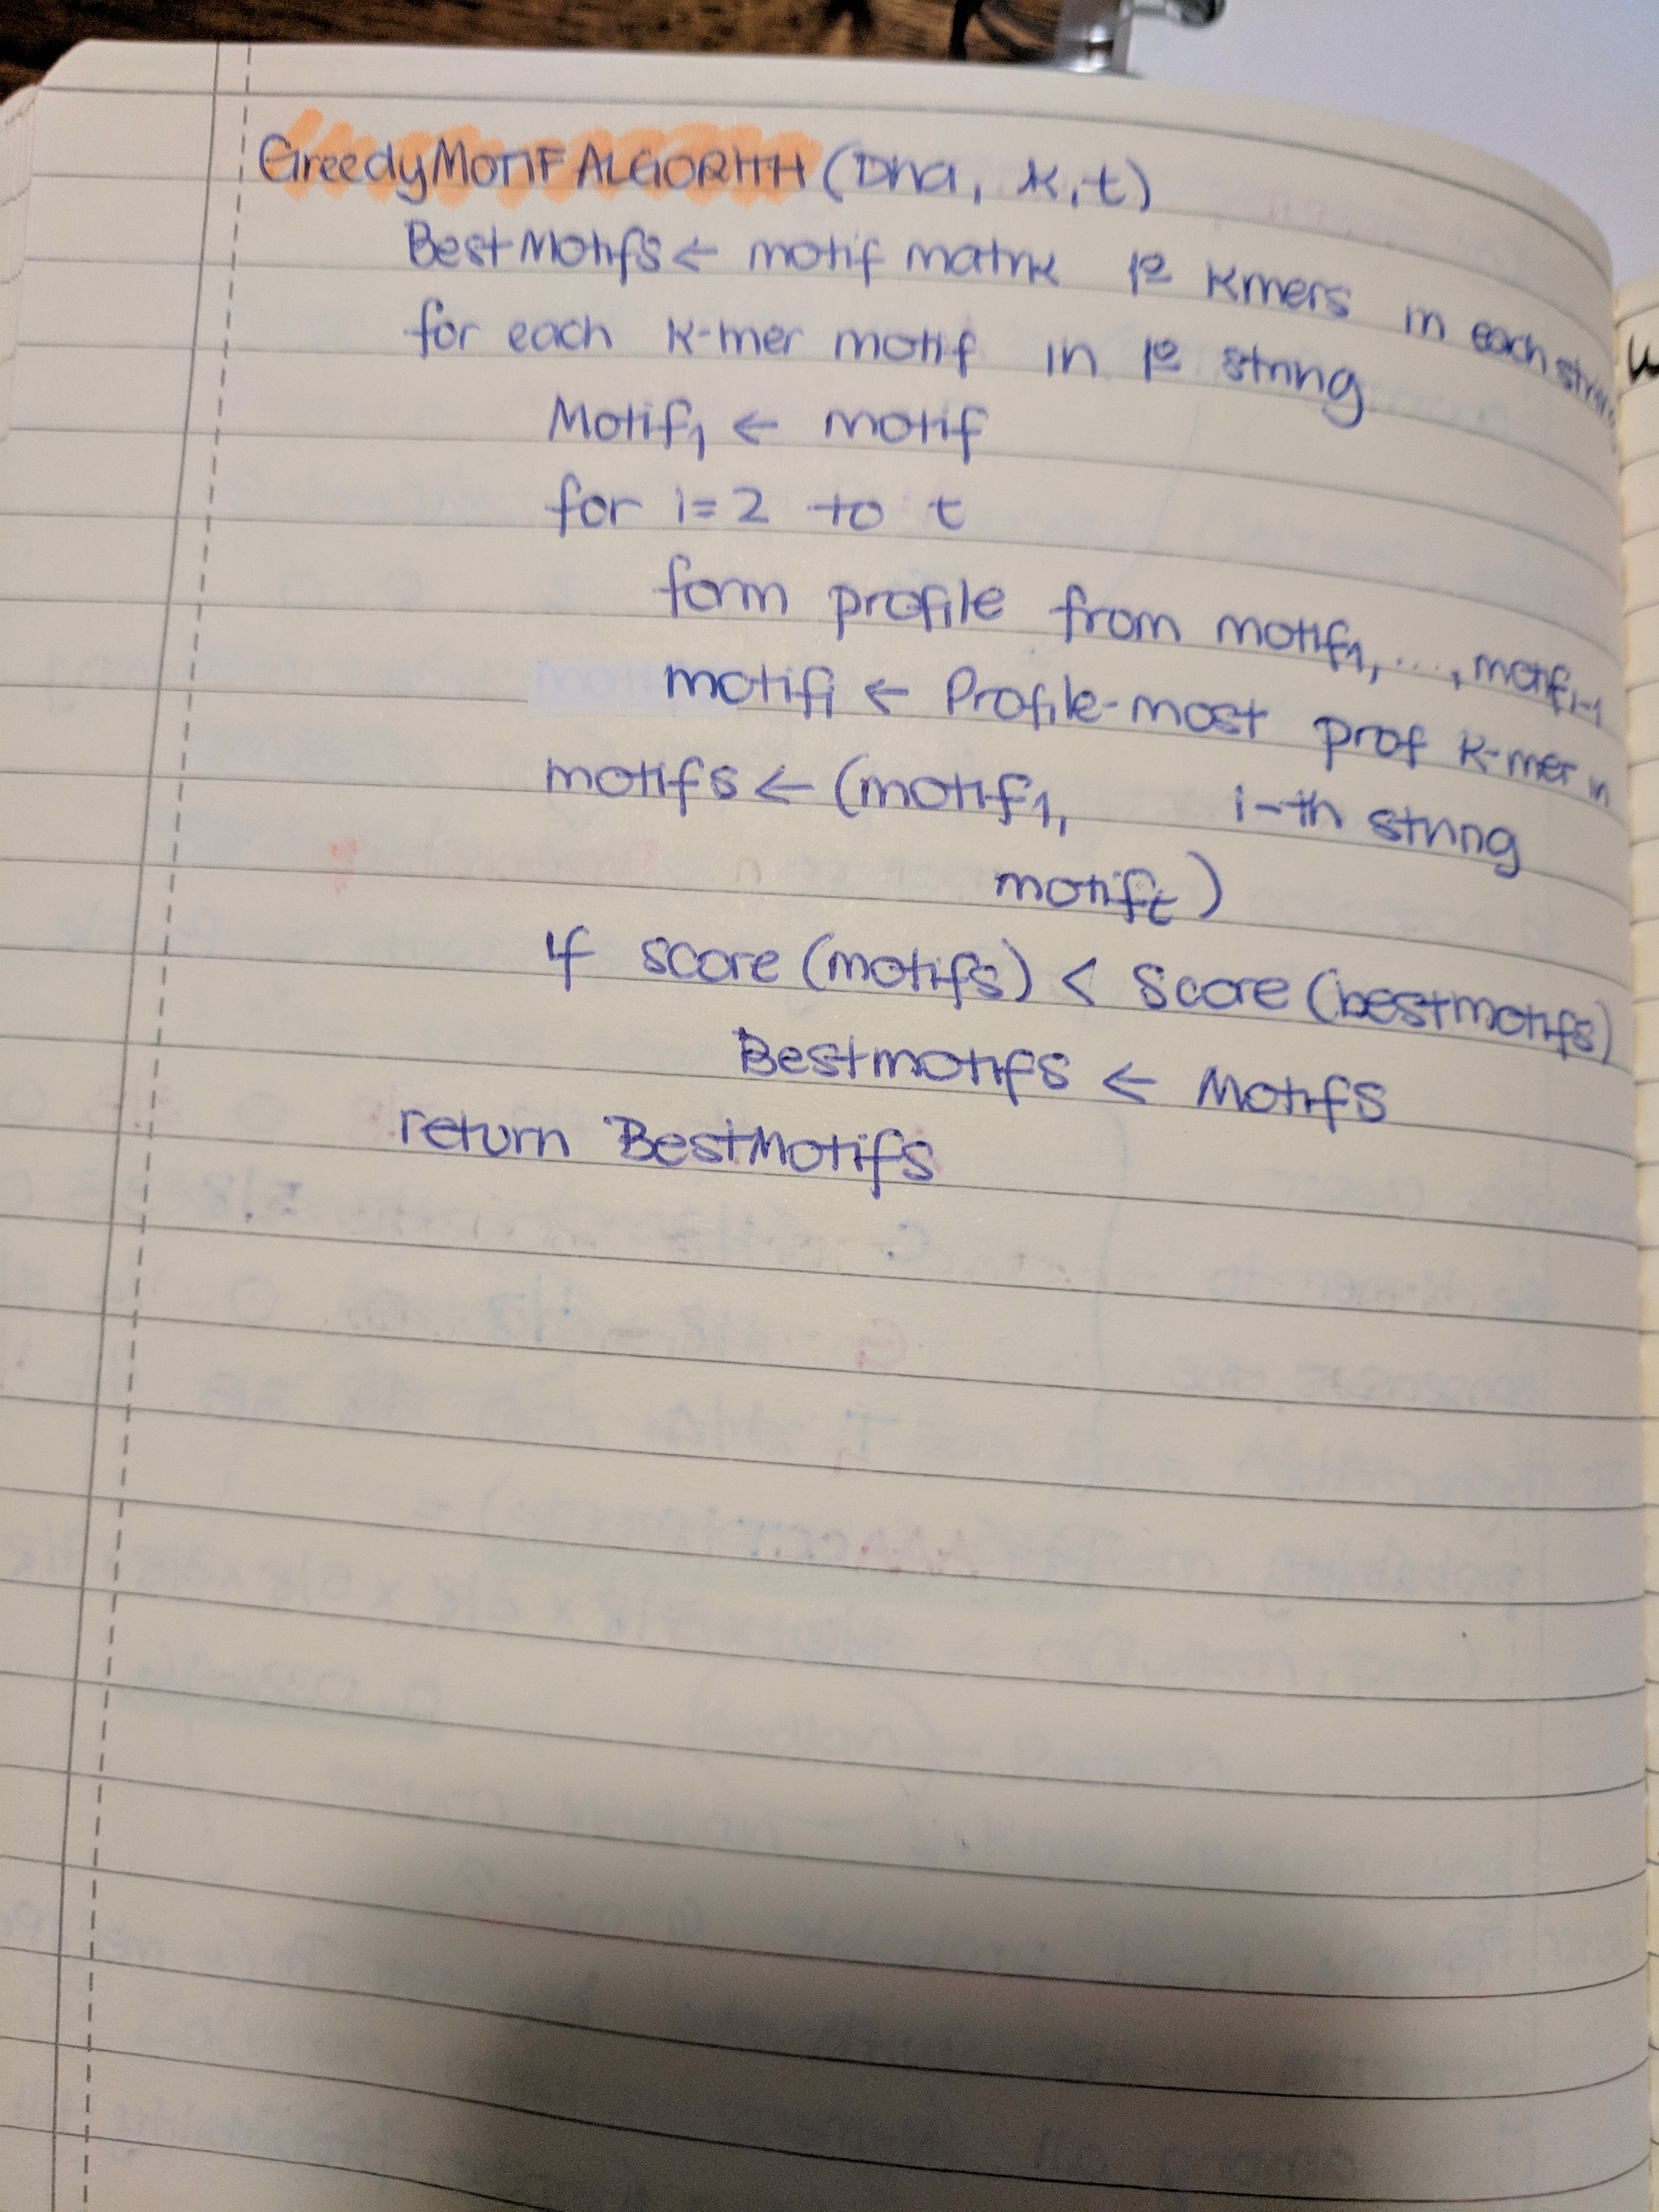 GreedyMOTIFALGORITH (Dna, k, t)
BestMotifs ← motif matrix 1º kmers in each string
for each k-mer motif in 1º string
Motif1 ← motif
for i=2 to t
form profile from motif1, ..., motifi-1
motifi ← Profile-most prof k-mer in
i-th string
motifs ← (motif1,
motift)
if score (motifs) < Score (bestmotifs)
Bestmotifs ← Motifs
return BestMotifs